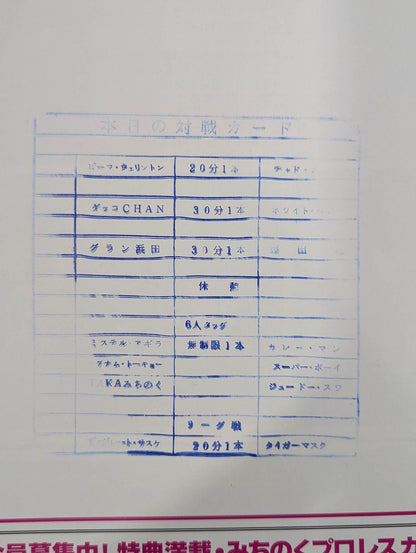 本日の対戦カード
ビーフ・ウェリントン 20分1本 チャド・
ダッコCHAN 30分1本 ホワイト・
グラン浜田 30分1本 田
休憩
6人タッグ
ミステル・アギラ 無制限1本 カレー・マン
スーパー・ボーイ
TAKAみちのく ジュードー・スワ
リーグ戦
ザ・グレート・サスケ 20分1本 タイガーマスク
会員募集中!特典満載・みちのくプロレスカ